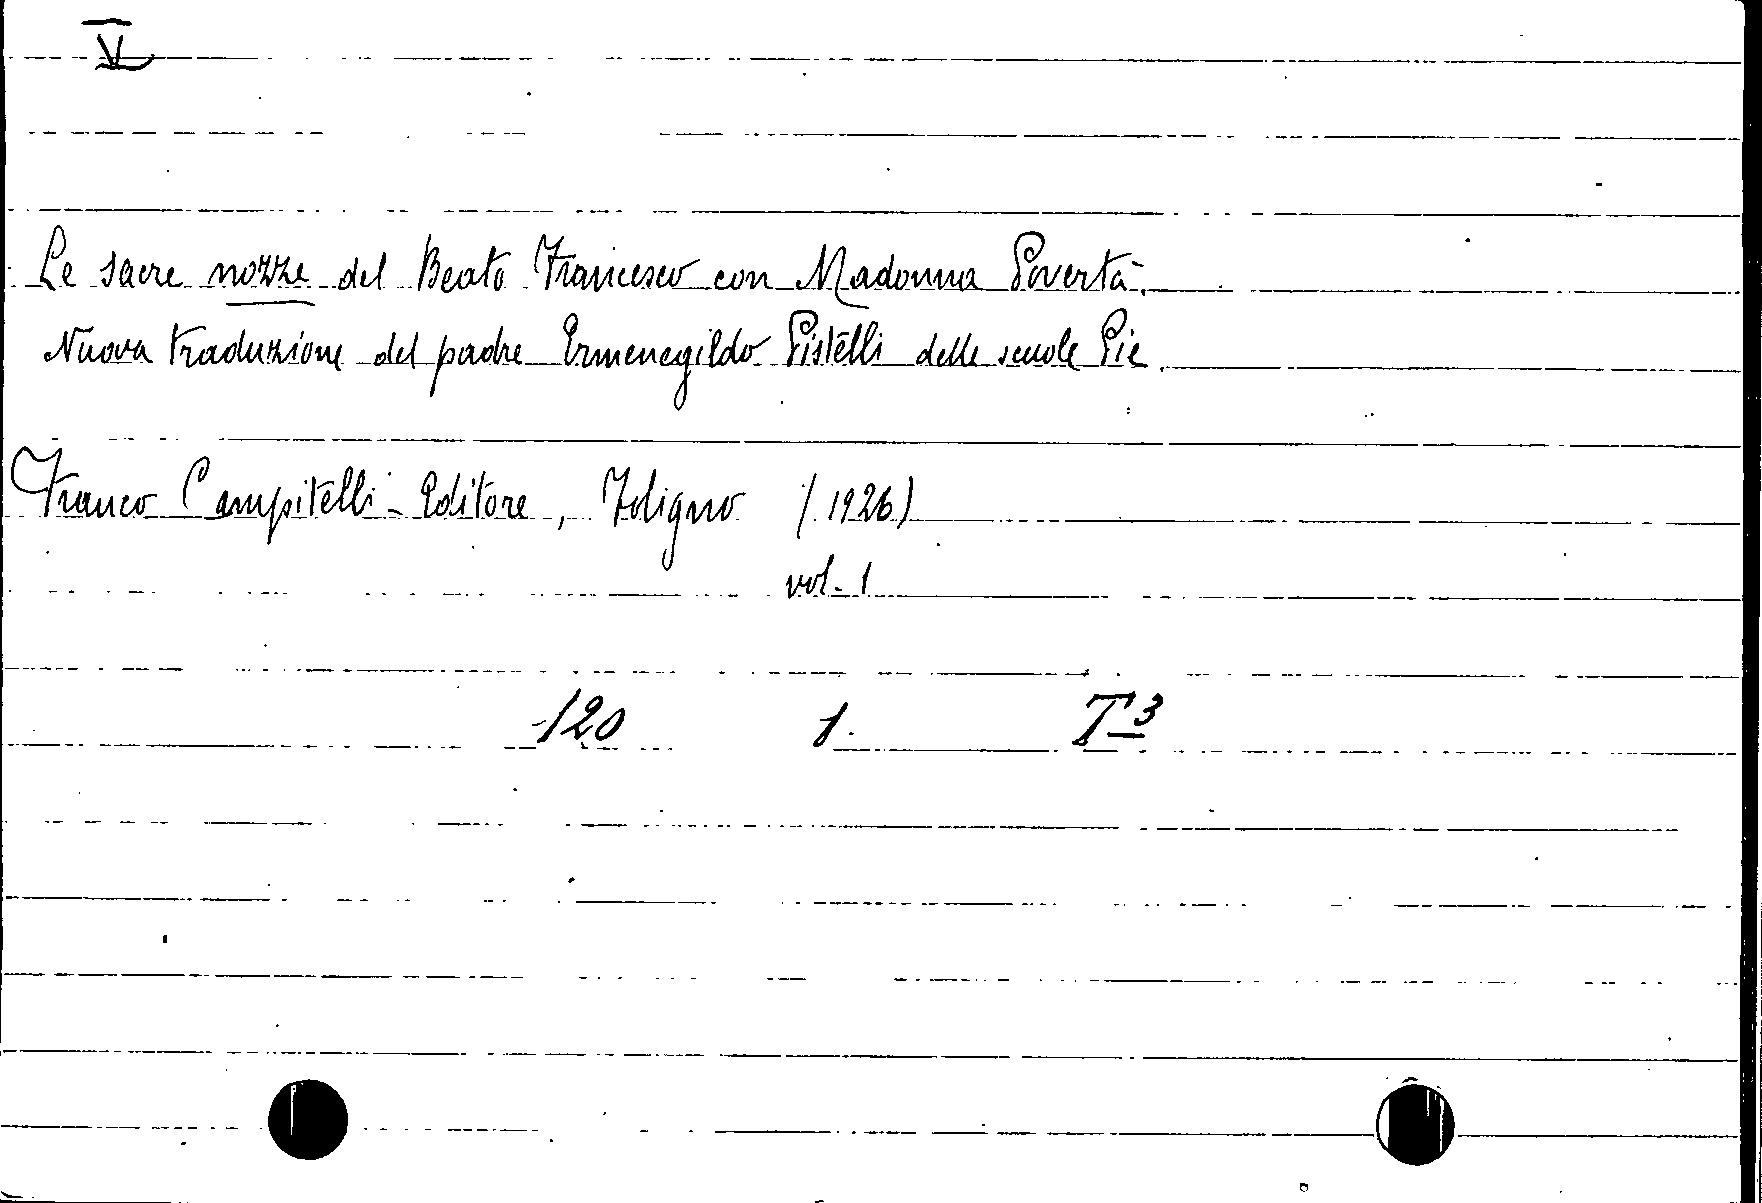 V
Le sacre nozze del Beato Francesco con Madonna Povertà.
Nuova traduzione del padre Ermenegildo Pistelli delle scuole Pie.
Franco Campitelli - Editore, Foligno (1926)
vol. 1
120 1. T³